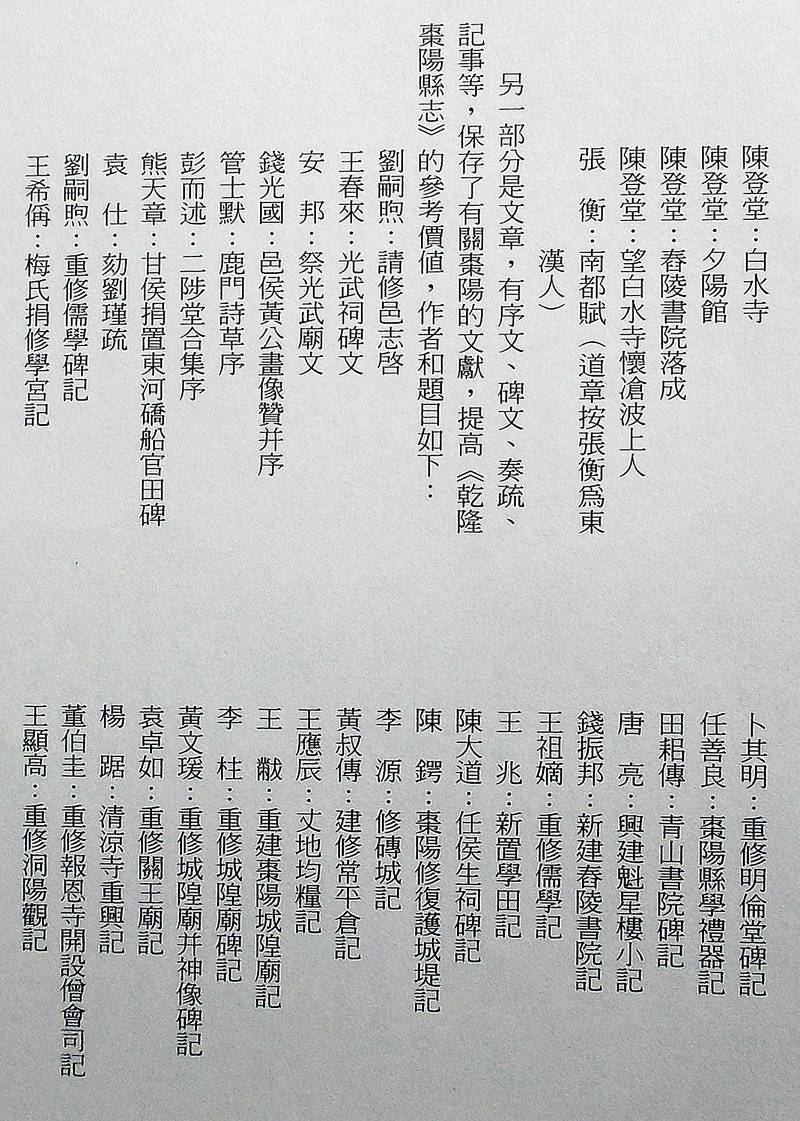 陳登堂：白水寺
陳登堂：夕陽館
陳登堂：舂陵書院落成
陳登堂：望白水寺懷滄波上人
張　衡：南都賦（道章按張衡爲東
漢人）
另一部分是文章，有序文、碑文、奏疏、
記事等，保存了有關棗陽的文獻，提高《乾隆
棗陽縣志》的參考價值，作者和題目如下：
劉嗣煦：請修邑志啓
王春來：光武祠碑文
安　邦：祭光武廟文
錢光國：邑侯黃公畫像贊并序
管士默：鹿門詩草序
彭而述：二陟堂合集序
熊天章：甘侯捐置東河磽船官田碑
袁　仕：劾劉瑾疏
劉嗣煦：重修儒學碑記
王希偁：梅氏捐修學宮記
卜其明：重修明倫堂碑記
任善良：棗陽縣學禮器記
田耜傳：青山書院碑記
唐　亮：興建魁星樓小記
錢振邦：新建舂陵書院記
王祖嫡：重修儒學記
王　兆：新置學田記
陳大道：任侯生祠碑記
陳　鍔：棗陽修復護城堤記
李　源：修磚城記
黃叔傳：建修常平倉記
王應辰：丈地均糧記
王　黻：重建棗陽城隍廟記
李　柱：重修城隍廟碑記
黃文瑗：重修城隍廟并神像碑記
袁卓如：重修關王廟記
楊　踞：清涼寺重興記
董伯圭：重修報恩寺開設僧會司記
王顯高：重修洞陽觀記